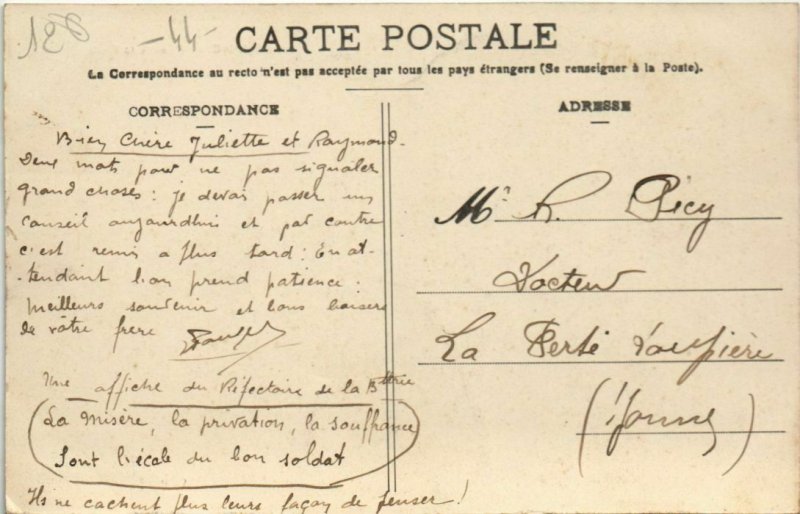 128 -44-
CARTE POSTALE
La Correspondance au recto n'est pas acceptée par tous les pays étrangers (Se renseigner à la Poste).
CORRESPONDANCE
Bien Chère Juliette et Raymond.
Deux mots pour ne pas signaler
grand choses : je devais passer un
conseil aujourdhui et par contre
c'est remis a plus tard : En at-
-tendant l'on prend patience :
Meilleurs souvenir et bons baisers
de vôtre frere
Une affiche du Réfectoire de la Bttrie
La misère, la privation, la souffrance
Sont l'école du bon soldat
Ils ne cachent plus leurs façon de penser !
ADRESSE
Mr R. Picy
Docteur
La Ferté Loupière
(Yonne)